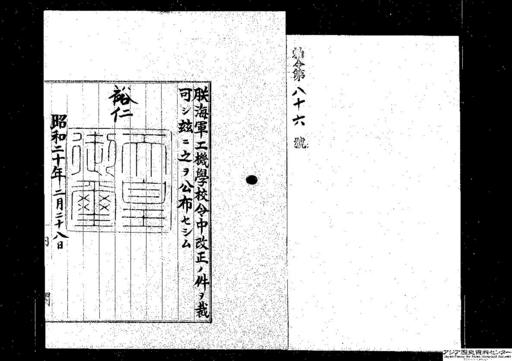 勅令第八十六號
朕海軍工機學校令中改正ノ件ヲ裁
可シ茲ニ之ヲ公布セシム
裕仁
天皇御璽
昭和二十年二月二十八日
内閣
アジア歴史資料センター